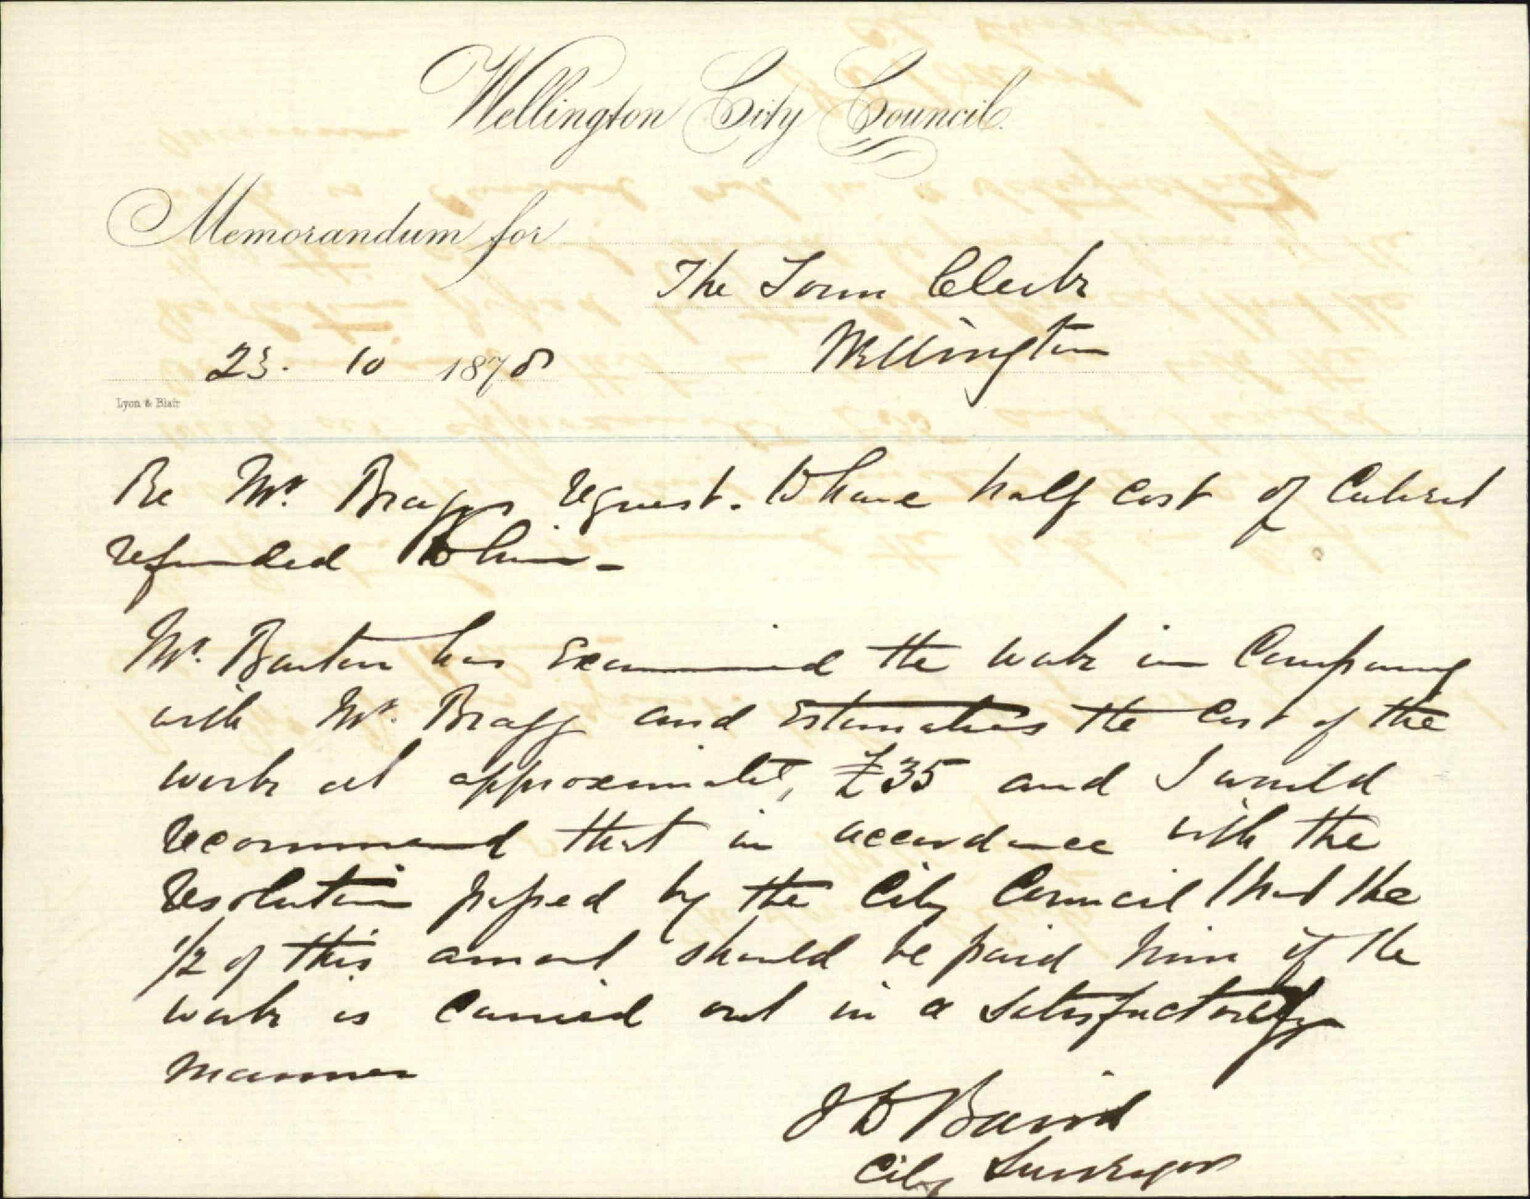 Wellington City Council.
Memorandum for
The Town Clerk
Wellington
23. 10 1878
Lyon & Blair
Re Mr. Braggs request. to have half cost of Culvert
refunded to him -
Mr. Barton has examined the work in Company
with Mr. Bragg and estimates the cost of the
work at approximate, £35 and I would
recommend that in accordance with the
resolution passed by the City Council that the
1/2 of this amount should be paid him if the
work is carried out in a satisfactory
manner
J D Baird
City Surveyor